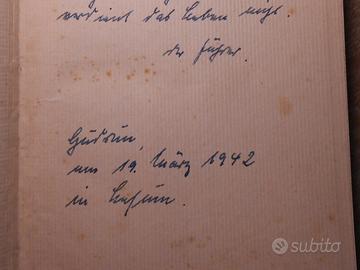 verdient das Leben nicht.
der Führer.
Gudrun,
am 19. März 1942
in
subito